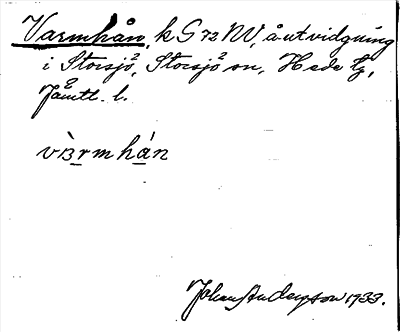 Varmhån, k G 72 NV, åutvidgning
i Storsjö, Storsjö sn, Hede tg,
Jämtl. l.
vàrmhán
Johan Anderson 1933.